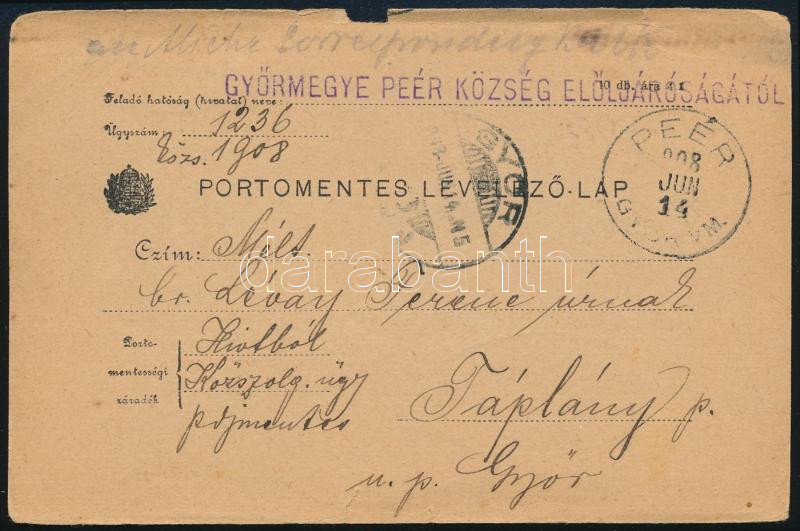 amtliche Correspondenz Karte
GYŐRMEGYE PEÉR KÖZSÉG ELŐLJÁRÓSÁGÁTÓL
10 db. ára
Feladó hatóság (hivatal) neve:
Ügyszám: 1236
közs. 1908
PEÉR
908
JUN
14
GYŐR VM.
GYŐR
PORTOMENTES LEVELEZŐ-LAP
Czím: Mélt.
br. Lévay Ferenc úrnak
Porto-
mentességi
záradék
Hivatból
Közszolg. ügy
pdjmentes
Táplány p.
u. p. Győr
darabanth